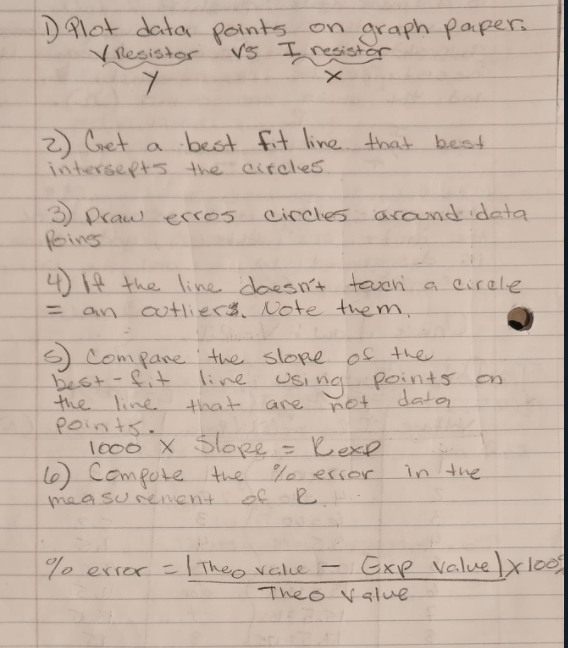 1) Plot data points on graph paper.
V Resistor vs I resistor
y x
2) Get a best fit line that best
intersepts the circles
3) Draw erros circles around data
Poins
4) If the line doesn't touch a circle
= an outliers. Note them.
5) Compare the slope of the
best-fit line using points on
the line that are not data
points.
1000 x Slope = Rexp
6) Compute the % error in the
measurement of R.
% error = |Theo value - Exp value| x 100%
Theo Value